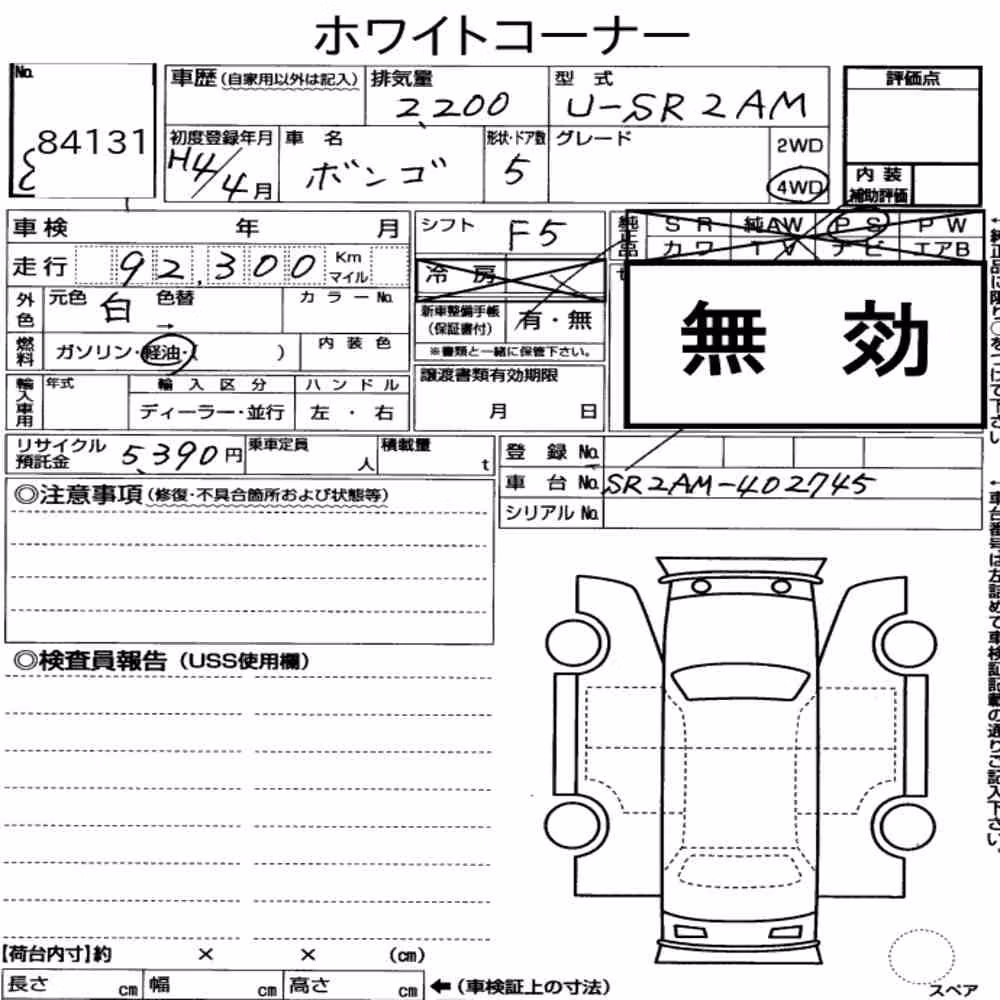 ホワイトコーナー
No.
84131
車歴 (自家用以外は記入)
排気量
2,200
型 式
U-SR2AM
初度登録年月
H4/4月
車 名
ボンゴ
形状・ドア数
5
グレード
2WD
4WD
評価点
内 装
補助評価
車検 年 月
走行 92,300 Km
マイル
シフト F5
冷 房
純正品
SR 純AW PS PW
カワ TV ナビ エアB
外色
元色 白 色替 カラーNo.
→
燃料
ガソリン・軽油・( )
内 装 色
新車整備手帳
(保証書付)
有・無
※書類と一緒に保管下さい。
輸入車用
年式
輸 入 区 分
ディーラー・並行
ハ ン ド ル
左 ・ 右
譲渡書類有効期限
月 日
無 効
←純正品に限り○をつけて下さい
リサイクル
預託金
5,390円
乗車定員
人
積載量
t
登 録 No.
車 台 No. SR2AM-402745
シリアル No.
←車台番号は左詰めで車検証記載の通りご記入下さい。
◎注意事項 (修復・不具合箇所および状態等)
◎検査員報告 (USS使用欄)
【荷台内寸】約 × × (cm)
長さ cm 幅 cm 高さ cm ←(車検証上の寸法)
スペア